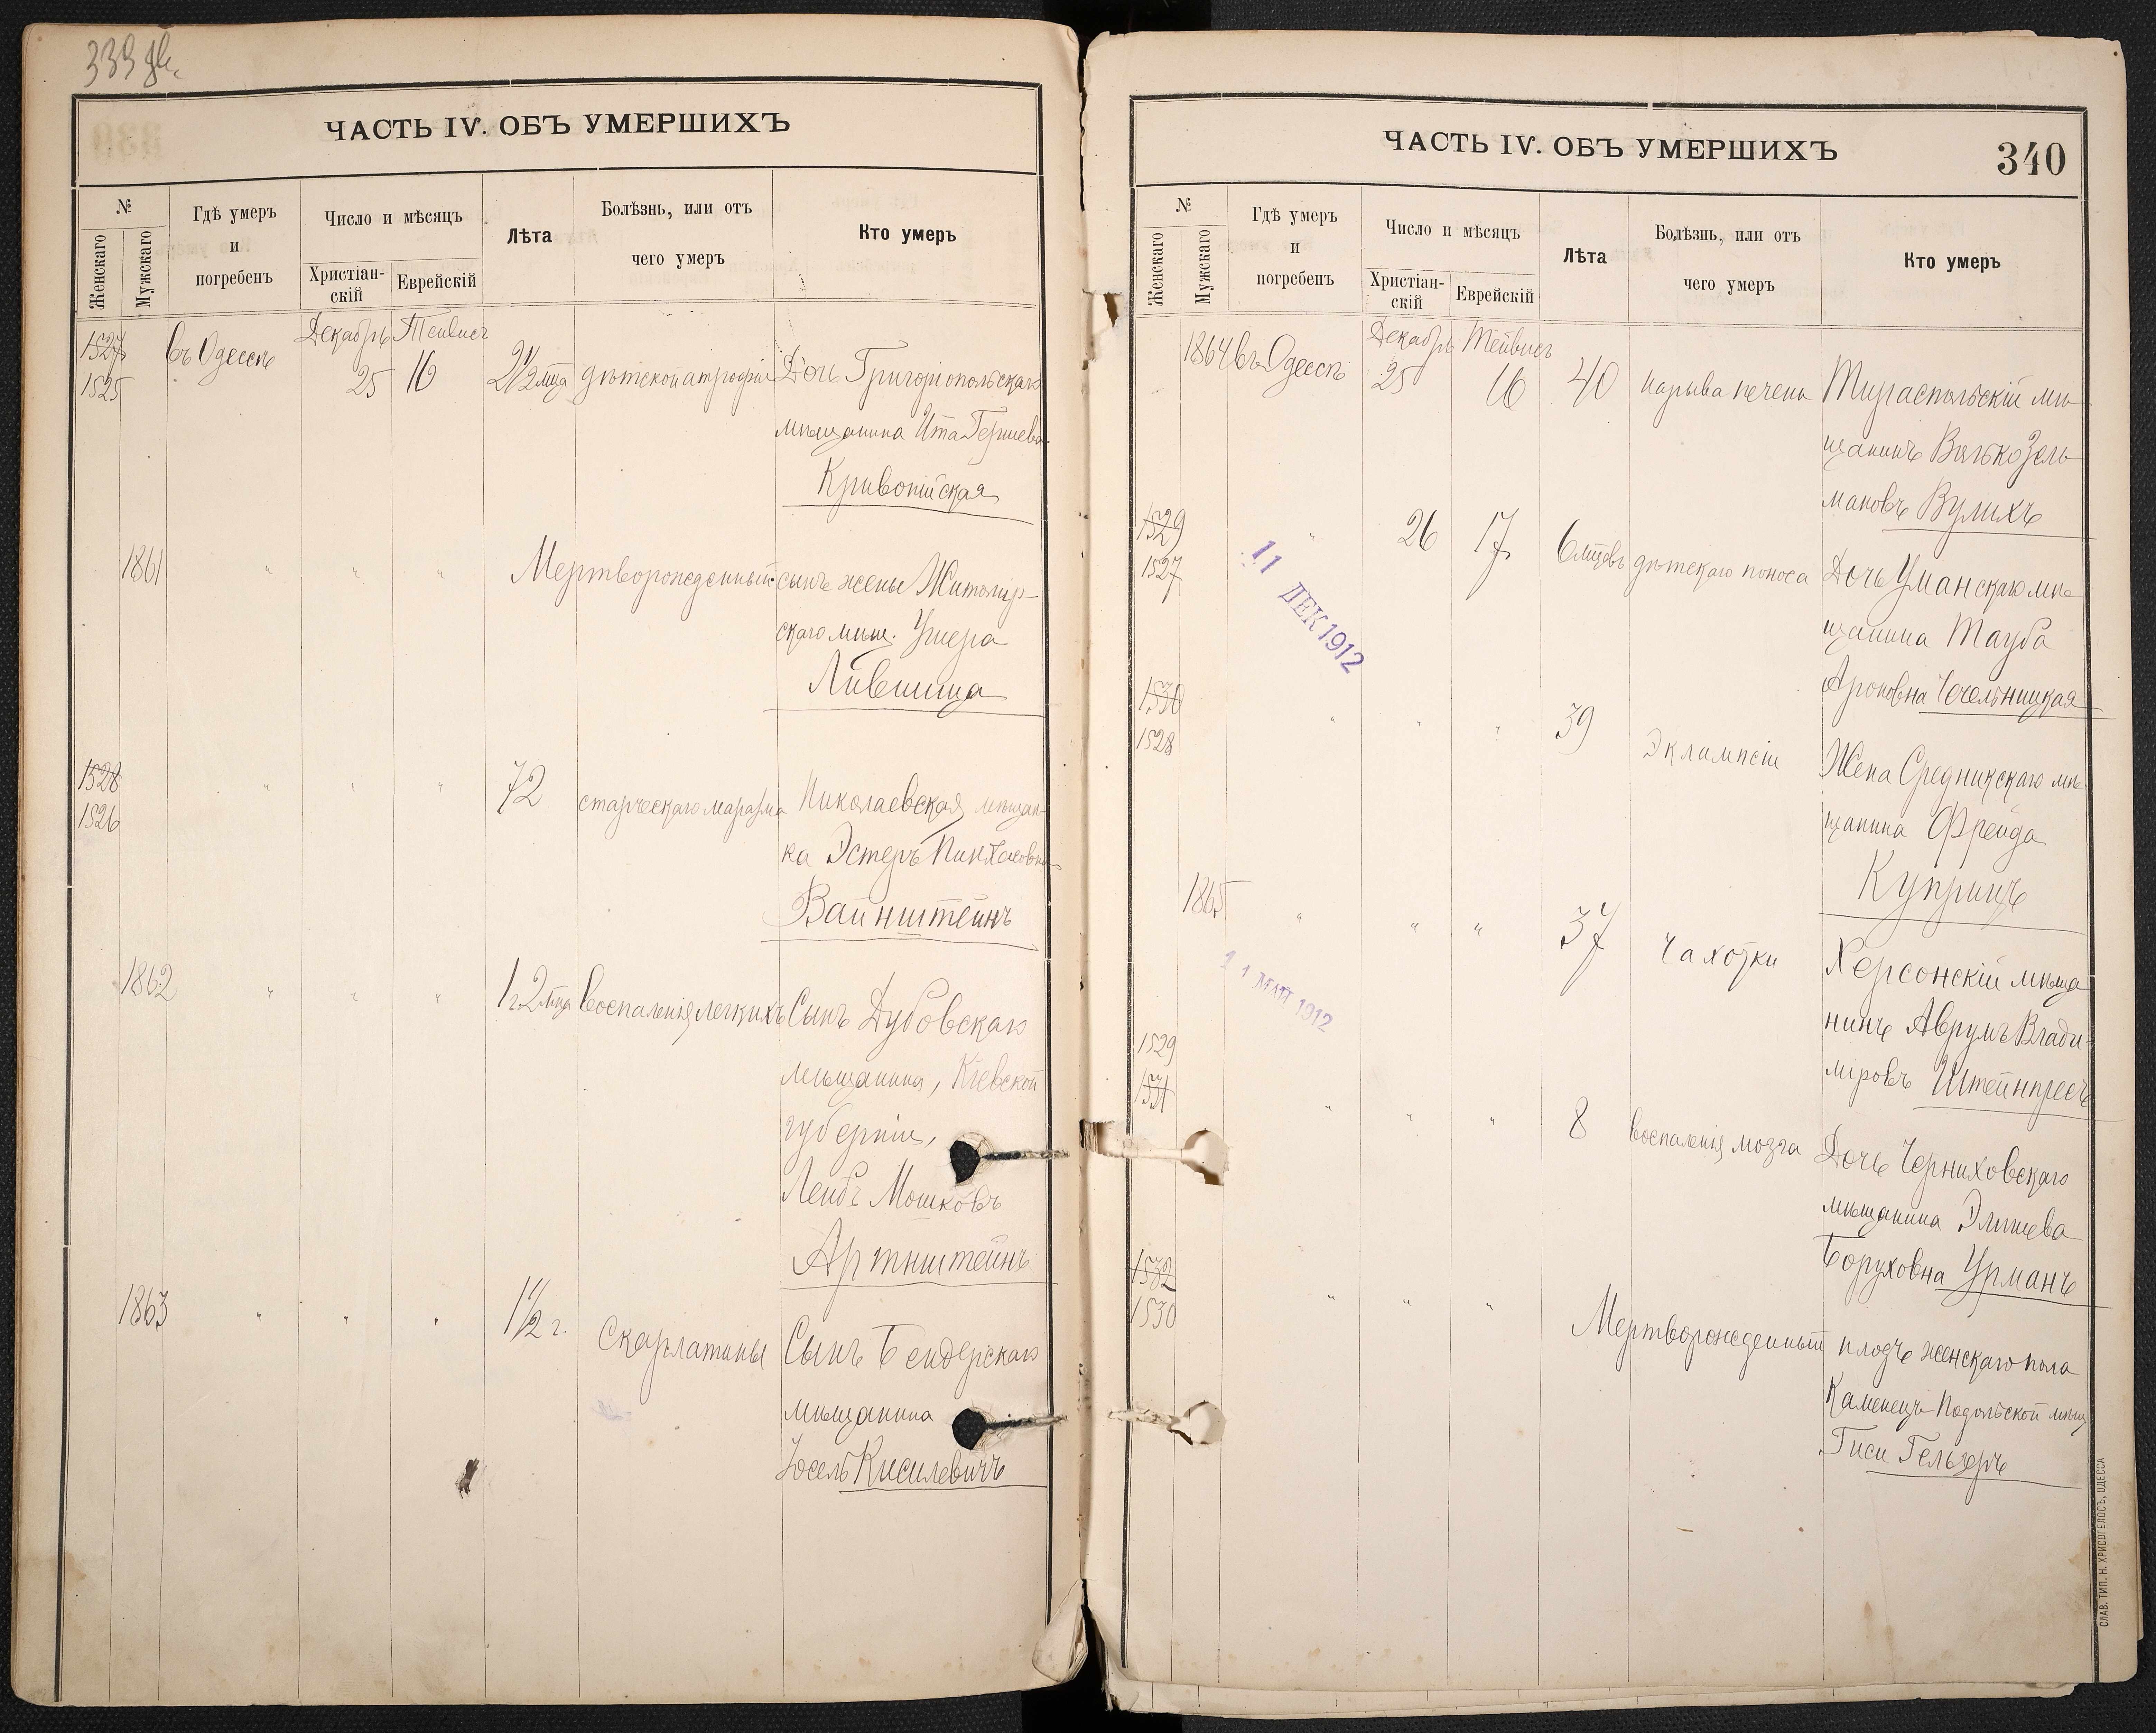 ЧАСТЬ IV. ОБЪ УМЕРШИХЪ
№
Женскаго
Мужскаго
Гдѣ умеръ
и
погребенъ
Число и мѣсяцъ
Христіан-
скій
Еврейскій
Лѣта
Болѣзнь, или отъ
чего умеръ
Кто умеръ
Декабрь Тейвисъ
1527 въ Одессѣ 25 16 2 1/2 мца дѣтской атрофіи Дочь Григоріопольскаго
1525
мѣщанина Ита Гершева
Кривопійская
1861 " " " Мертворожденный сынъ жены Житомир-
скаго мѣщ. Ушера
Лившица
1528 " " " 72 старческаго маразма Николаевская мѣщан-
1526
ка Эстеръ Пинхасовна
Вайнштейнъ
1862 " " " 1 г. 2 мца воспаленія легкихъ Сынъ Дубовскаго
мѣщанина, Кіевской
губерніи,
Лейбъ Мошковъ
Артнштейнъ
1863 " " " 1 1/2 г. Скарлатины Сынъ Бендерскаго
мѣщанина
Іосель Кисилевичъ
ЧАСТЬ IV. ОБЪ УМЕРШИХЪ
340
№
Женскаго
Мужскаго
Гдѣ умеръ
и
погребенъ
Число и мѣсяцъ
Христіан-
скій
Еврейскій
Лѣта
Болѣзнь, или отъ
чего умеръ
Кто умеръ
Декабрь Тейвисъ
1864 въ Одессѣ 25 16 40 нарыва печени Тираспольскій мѣ-
щанинъ Волько Зель-
мановъ Вулихъ
1529 " 26 17 6 мцевъ дѣтскаго поноса Дочь Уманскаго мѣ-
1527
щанина Тауба
Ароновна Чечельницкая
11 ДЕК 1912
1530 " " " 39 Эклампсіи Жена Средникскаго мѣ-
1528
щанина Фрейда
Куприцъ
1865 " " " 37 Чахотки Херсонскій мѣща-
нинъ Аврумъ Влади-
міровъ Штейнпресъ
11 МАЙ 1912
1529
1531 " " " 8 воспаленія мозга Дочь Черниховскаго
мѣщанина Элишева
Боруховна Урманъ
1532
1530 " " " Мертворожденный плодъ женскаго пола
Каменецъ-Подольской мѣщ.
Гиси Гельзеръ
СЛАВ. ТИП. Н. ХРИСОГЕЛОСЪ, ОДЕССА